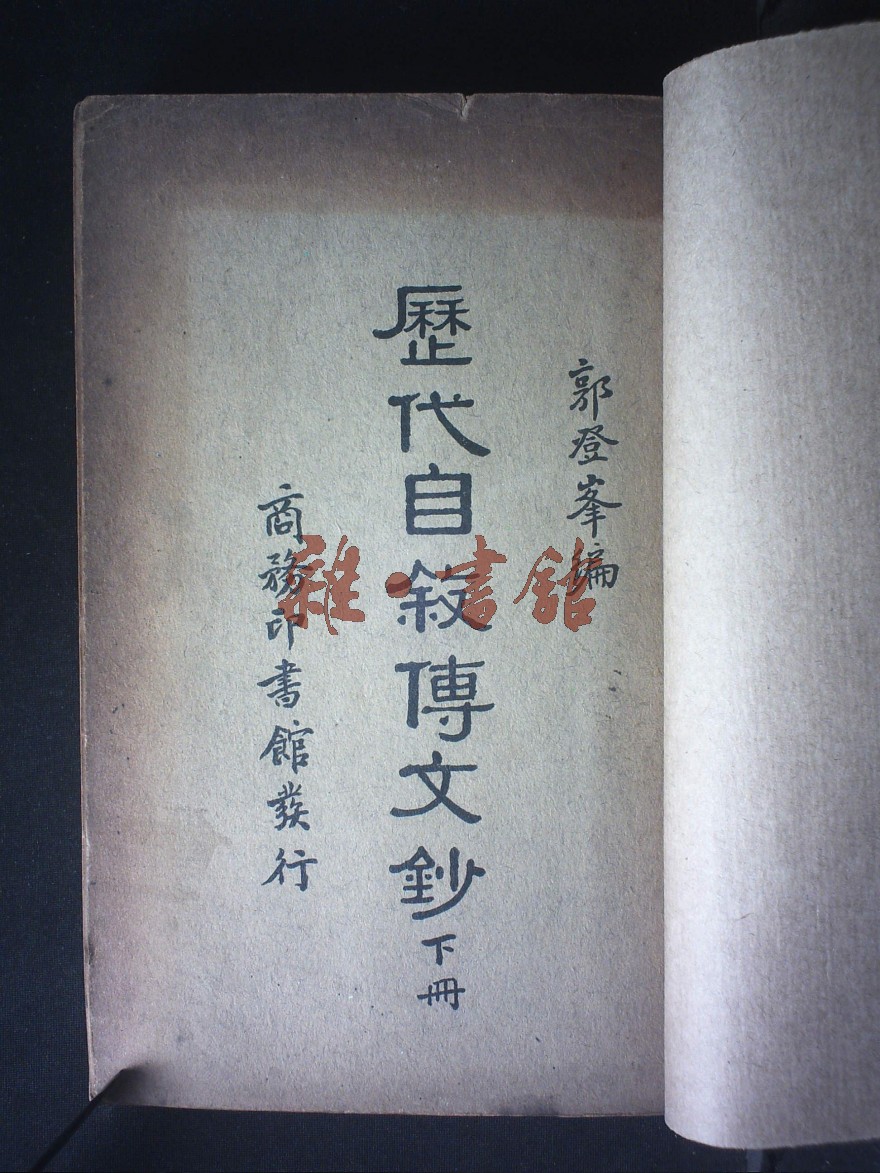 郭登峯編
歷代自敍傳文鈔下冊
商務印書館發行
雜·書館